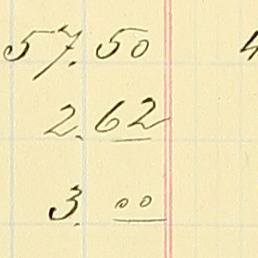 57.50 4
2.62
3.00